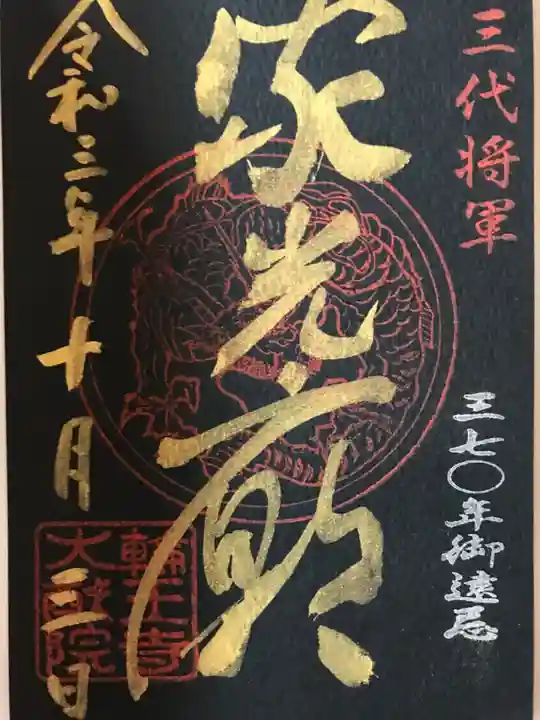 三代将軍
三七〇年御遠忌
家光廟
令和三年十月三日
輪王寺
大猷院